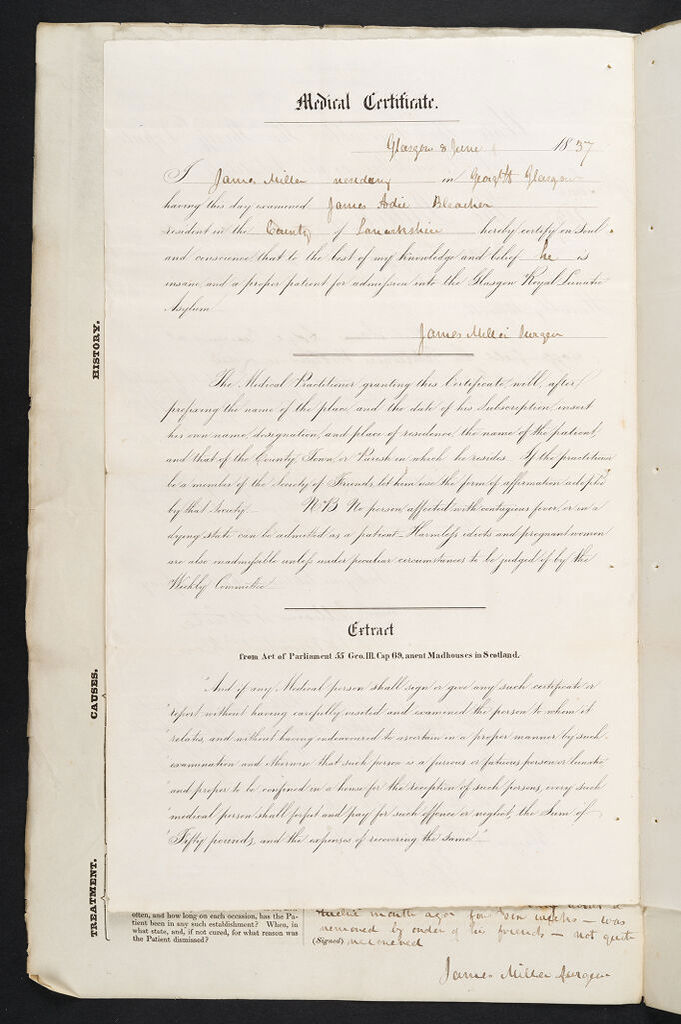 Medical Certificate.
Glasgow 8 June 1837
I James Miller residing in Glasgow
having this day examined James Adie Bleacher
resident in the County of Lanarkshire hereby certify on Soul
and conscience that to the best of my knowledge and belief he is
insane and a proper patient for admission into the Glasgow Royal Lunatic
Asylum
James Miller Surgeon
The Medical Practitioner granting this Certificate, will, after
prefixing the name of the place and the date of his Subscription, insert
his own name, designation, and place of residence, the name of the patient,
and that of the County, Town, or Parish in which he resides. If the practitioner
be a member of the Society of Friends, let him use the form of affirmation adopted
by that Society. NB No person affected with contagious fever, or in a
dying state can be admitted as a patient – Harmless idiots and pregnant women
are also inadmissible unless under peculiar circumstances to be judged of by the
Weekly Committee
Extract
from Act of Parliament 55 Geo. III. Cap 69, anent Madhouses in Scotland.
"And if any Medical person shall sign or give any such certificate or
"report without having carefully visited and examined the person to whom it
"relates, and without having endeavoured to ascertain in a proper manner by such
"examination and otherwise that such person is a furious or fatuous person or lunatic
"and proper to be confined in a house for the reception of such persons, every such
"medical person shall forfeit and pay for such offence or neglect, the Sum of
"Fifty pounds, and the expenses of recovering the same"
HISTORY.
CAUSES.
TREATMENT.
often, and how long on each occasion, has the Pa-
tient been in any such establishment? When, in
what state, and, if not cured, for what reason was
the Patient dismissed?
twelve month ago for six weeks – was
removed by order of his friends – not quite
(Signed) recovered
James Miller Surgeon